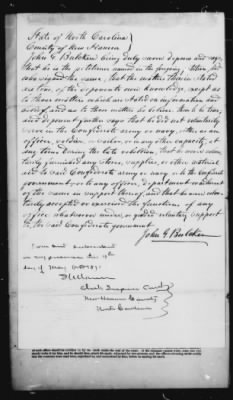 State of North Carolina
County of New Hanover
John G Butcher being duly sworn deposes and says
that he is the petitioner named in the foregoing petition, and
who signed the same, that the matters therein stated
as true of the deponents own knowledge, except as
to those matters which are stated on information and
belief and as to those matters he believes them to be true,
and deponent further says that he did not voluntarily
serve in the Confederate army or navy, either as an
officer, soldier or sailor, or in any other capacity, at
any time during the late rebellion, that he never volun-
tarily furnished any stores, supplies, or other material
aid to said Confederate army or navy or to the Confed
government or to any officer, department or adherent
of the same in support thereof, and that he never volun-
tarily accepted or exercised the functions of any
office whatsoever under, or yielded voluntary support
to, the said Confederate government
John G Butcher
Sworn and subscribed
in my presence this
day of May 1871
Clerk Superior Court
New Hanover County
North Carolina